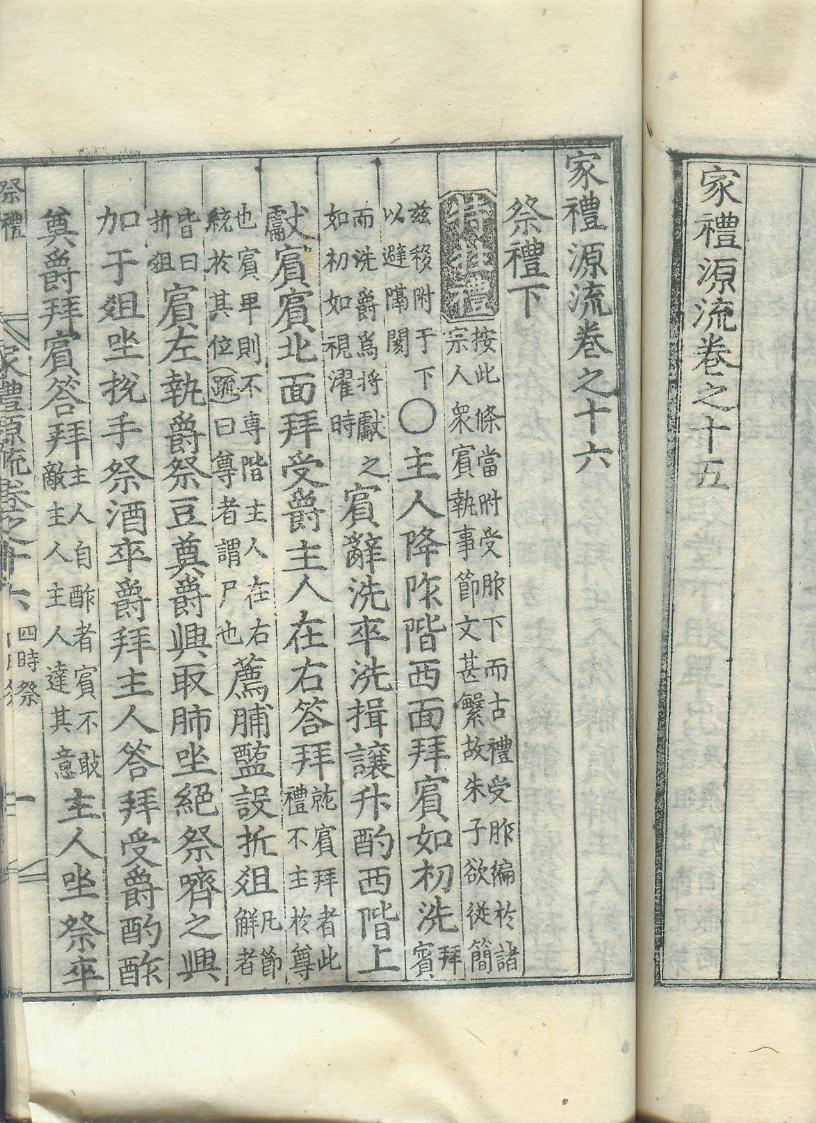 家禮源流卷之十五
家禮源流卷之十六
祭禮下
特牲禮 按此條當附受胙下而古禮受胙編於諸宗人衆賓執事節文甚繁故朱子欲從簡
玆移附于下以避隔閡○主人降阼階西面拜賓如初洗拜賓
而洗爵爲將獻之如初如視濯時賓辭洗卒洗揖讓升酌西階上
獻賓賓北面拜受爵主人在右答拜就賓拜者此禮不主於尊
也賓卑則不專階主人在右統於其位疏曰尊者謂尸也薦脯醢設折俎凡節解者
皆曰折俎賓左執爵祭豆奠爵興取肺坐絕祭嚌之興
加于俎坐挩手祭酒卒爵拜主人答拜受爵酌酢
奠爵拜賓答拜主人自酢者賓不敢敵主人主人達其意主人坐祭卒
祭禮 家禮源流卷之十六 四時祭 一